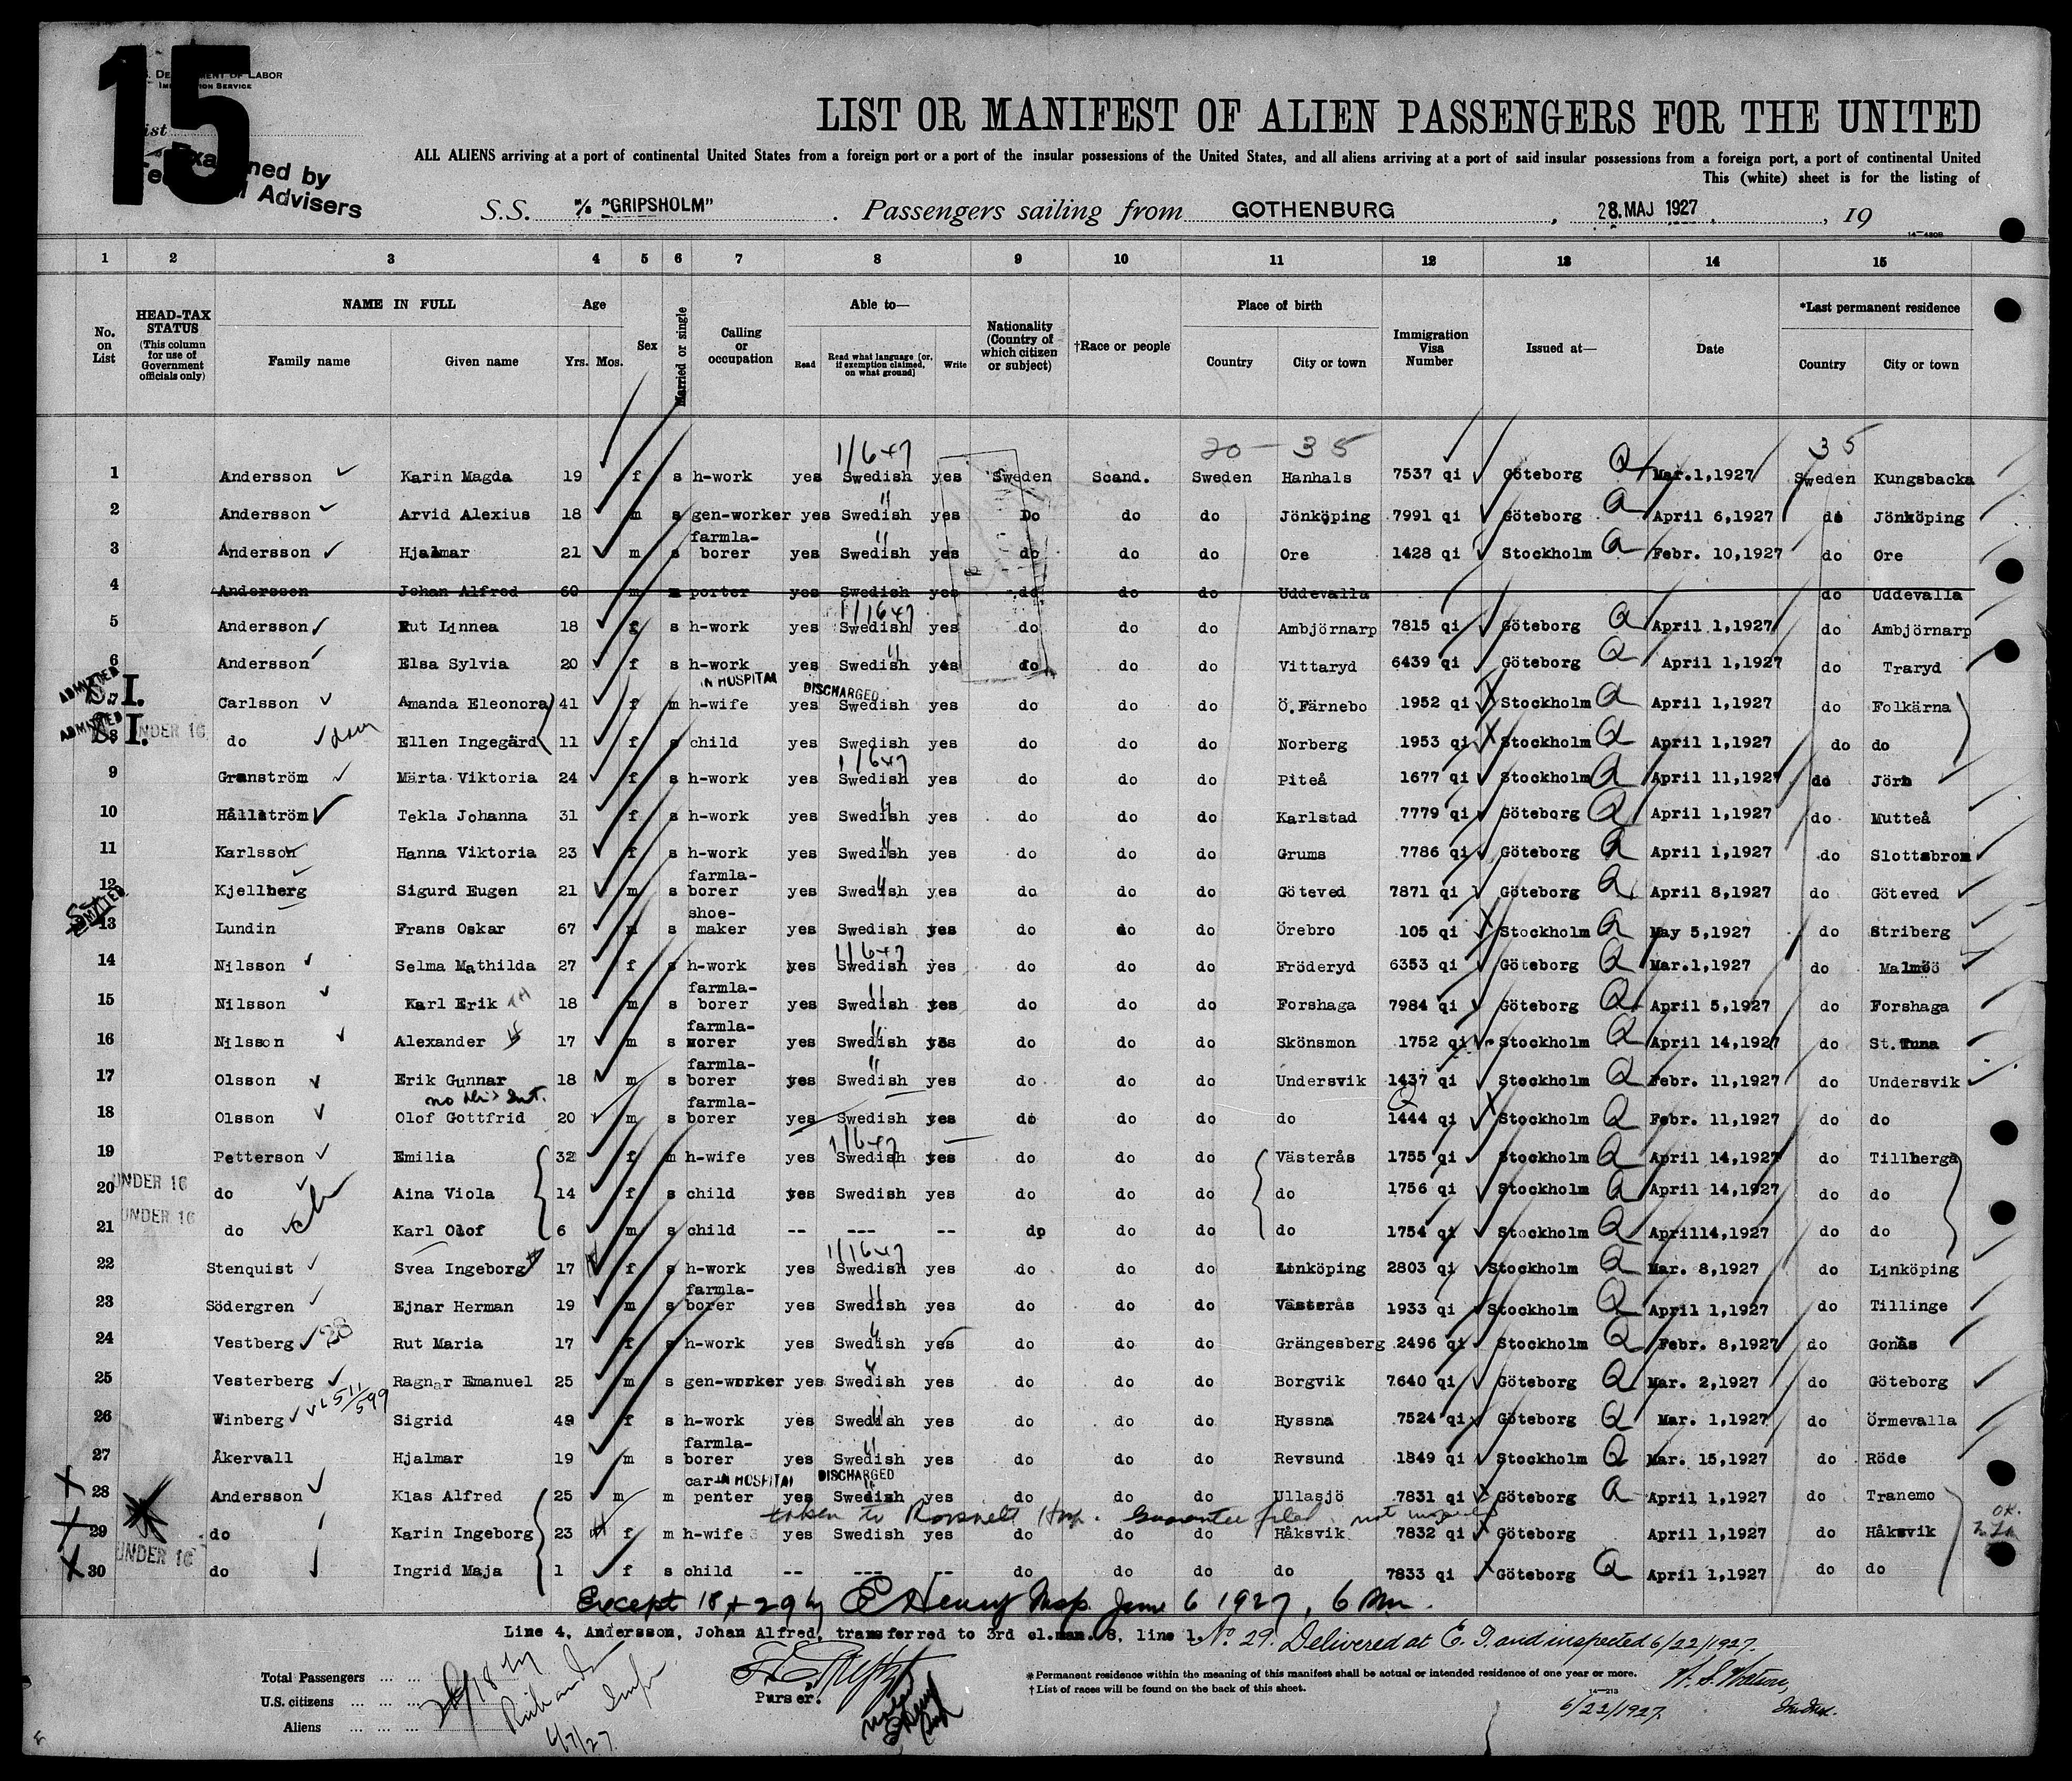 15
U.S. DEPARTMENT OF LABOR
IMMIGRATION SERVICE
List
Examined by
Advisers
LIST OR MANIFEST OF ALIEN PASSENGERS FOR THE UNITED
ALL ALIENS arriving at a port of continental United States from a foreign port or a port of the insular possessions of the United States, and all aliens arriving at a port of said insular possessions from a foreign port, a port of continental United
This (white) sheet is for the listing of
S.S. M/S "GRIPSHOLM" . Passengers sailing from GOTHENBURG , 28. MAJ 1927 , 19
14—4208
1 2 3 4 5 6 7 8 9 10 11 12 13 14 15
No. on List
HEAD-TAX STATUS
(This column for use of Government officials only)
NAME IN FULL
Family name Given name
Age
Yrs. Mos.
Sex
Married or single
Calling or occupation
Able to—
Read Read what language [or, if exemption claimed, on what ground] Write
Nationality (Country of which citizen or subject)
†Race or people
Place of birth
Country City or town
Immigration Visa Number
Issued at—
Date
*Last permanent residence
Country City or town
20 - 35 35
1 Andersson Karin Magda 19 f s h-work yes Swedish yes Sweden Scand. Sweden Hanhals 7537 qi Göteborg Mar.1,1927 Sweden Kungsbacka
2 Andersson Arvid Alexius 18 m s gen-worker yes Swedish yes Do do do Jönköping 7991 qi Göteborg April 6,1927 do Jönköping
3 Andersson Hjalmar 21 m s farmla-borer yes Swedish yes do do do Ore 1428 qi Stockholm Febr. 10,1927 do Ore
4 Andersson Johan Alfred 60 m m porter yes Swedish yes do do do Uddevalla do Uddevalla
5 Andersson Rut Linnea 18 f s h-work yes Swedish yes do do do Ambjörnarp 7815 qi Göteborg April 1,1927 do Ambjörnarp
6 Andersson Elsa Sylvia 20 f s h-work yes Swedish yes do do do Vittaryd 6439 qi Göteborg April 1,1927 do Traryd
ADMITTED S.I. IN HOSPITAL DISCHARGED
7 Carlsson Amanda Eleonora 41 f m h-wife yes Swedish yes do do do Ö.Färnebo 1952 qi Stockholm April 1,1927 do Folkärna
ADMITTED S.I. UNDER 16
8 do Ellen Ingegärd 11 f s child yes Swedish yes do do do Norberg 1953 qi Stockholm April 1,1927 do do
9 Granström Märta Viktoria 24 f s h-work yes Swedish yes do do do Piteå 1677 qi Stockholm April 11,1927 do Jörn
10 Hållström Tekla Johanna 31 f s h-work yes Swedish yes do do do Karlstad 7779 qi Göteborg April 1,1927 do Mutteå
11 Karlsson Hanna Viktoria 23 f s h-work yes Swedish yes do do do Grums 7786 qi Göteborg April 1,1927 do Slottsbron
12 Kjellberg Sigurd Eugen 21 m s farmla-borer yes Swedish yes do do do Göteved 7871 qi Göteborg April 8,1927 do Göteved
ADMITTED
13 Lundin Frans Oskar 67 m s shoe-maker yes Swedish yes do do do Örebro 105 qi Stockholm May 5,1927 do Striberg
14 Nilsson Selma Mathilda 27 f s h-work yes Swedish yes do do do Fröderyd 6353 qi Göteborg Mar.1,1927 do Malmöö
15 Nilsson Karl Erik 18 m s farmla-borer yes Swedish yes do do do Forshaga 7984 qi Göteborg April 5,1927 do Forshaga
16 Nilsson Alexander 17 m s farmla-borer yes Swedish yes do do do Skönsmon 1752 qi Stockholm April 14,1927 do St.Tuna
17 Olsson Erik Gunnar 18 m s farmla-borer yes Swedish yes do do do Undersvik 1437 qi Stockholm Febr. 11,1927 do Undersvik
18 Olsson Olof Gottfrid 20 m s farmla-borer yes Swedish yes do do do 1444 qi Stockholm Febr. 11,1927 do do
19 Petterson Emilia 32 f m h-wife yes Swedish yes do do do Västerås 1755 qi Stockholm April 14,1927 do Tillberga
20 UNDER 16 do Aina Viola 14 f s child yes Swedish yes do do do do 1756 qi Stockholm April 14,1927 do do
21 UNDER 16 do Karl Olof 6 m s child -- --- -- do do do do 1754 qi Stockholm April14,1927 do do
22 Stenquist Svea Ingeborg 17 f s h-work yes Swedish yes do do do Linköping 2803 qi Stockholm Mar. 8,1927 do Linköping
23 Södergren Ejnar Herman 19 m s farmla-borer yes Swedish yes do do do Västerås 1933 qi Stockholm April 1,1927 do Tillinge
24 Vestberg Rut Maria 17 f s h-work yes Swedish yes do do do Grängesberg 2496 qi Stockholm Febr. 8,1927 do Gonäs
25 Vesterberg Ragnar Emanuel 25 m s gen-worker yes Swedish yes do do do Borgvik 7640 qi Göteborg Mar. 2,1927 do Göteborg
26 Winberg Sigrid 49 f s h-work yes Swedish yes do do do Hyssna 7524 qi Göteborg Mar. 1,1927 do Örmevalla
27 Åkervall Hjalmar 19 m s farmla-borer yes Swedish yes do do do Revsund 1849 qi Stockholm Mar. 15,1927 do Röde
IN HOSPITAL DISCHARGED
28 Andersson Klas Alfred 25 m m car-penter yes Swedish yes do do do Ullasjö 7831 qi Göteborg April 1,1927 do Tranemo
taken to Roosevelt Hosp. Guarantee filed. not inspected
29 do Karin Ingeborg 23 f m h-wife yes Swedish yes do do do Håksvik 7832 qi Göteborg April 1,1927 do Håksvik
30 UNDER 16 do Ingrid Maja 1 f s child -- --- -- do do do do 7833 qi Göteborg April 1,1927 do do
Except 18 + 29 by E Henry Insp. June 6 1927,
Line 4, Andersson, Johan Alfred, transferred to 3rd cl.man. 8, line 1. No. 29. Delivered at E. I. and inspected 6/22/1927.
Total Passengers
U.S. citizens
Aliens
6/7/27
Purser.
*Permanent residence within the meaning of this manifest shall be actual or intended residence of one year or more.
†List of races will be found on the back of this sheet.
14—213
H. S. Watson,
6/22/1927